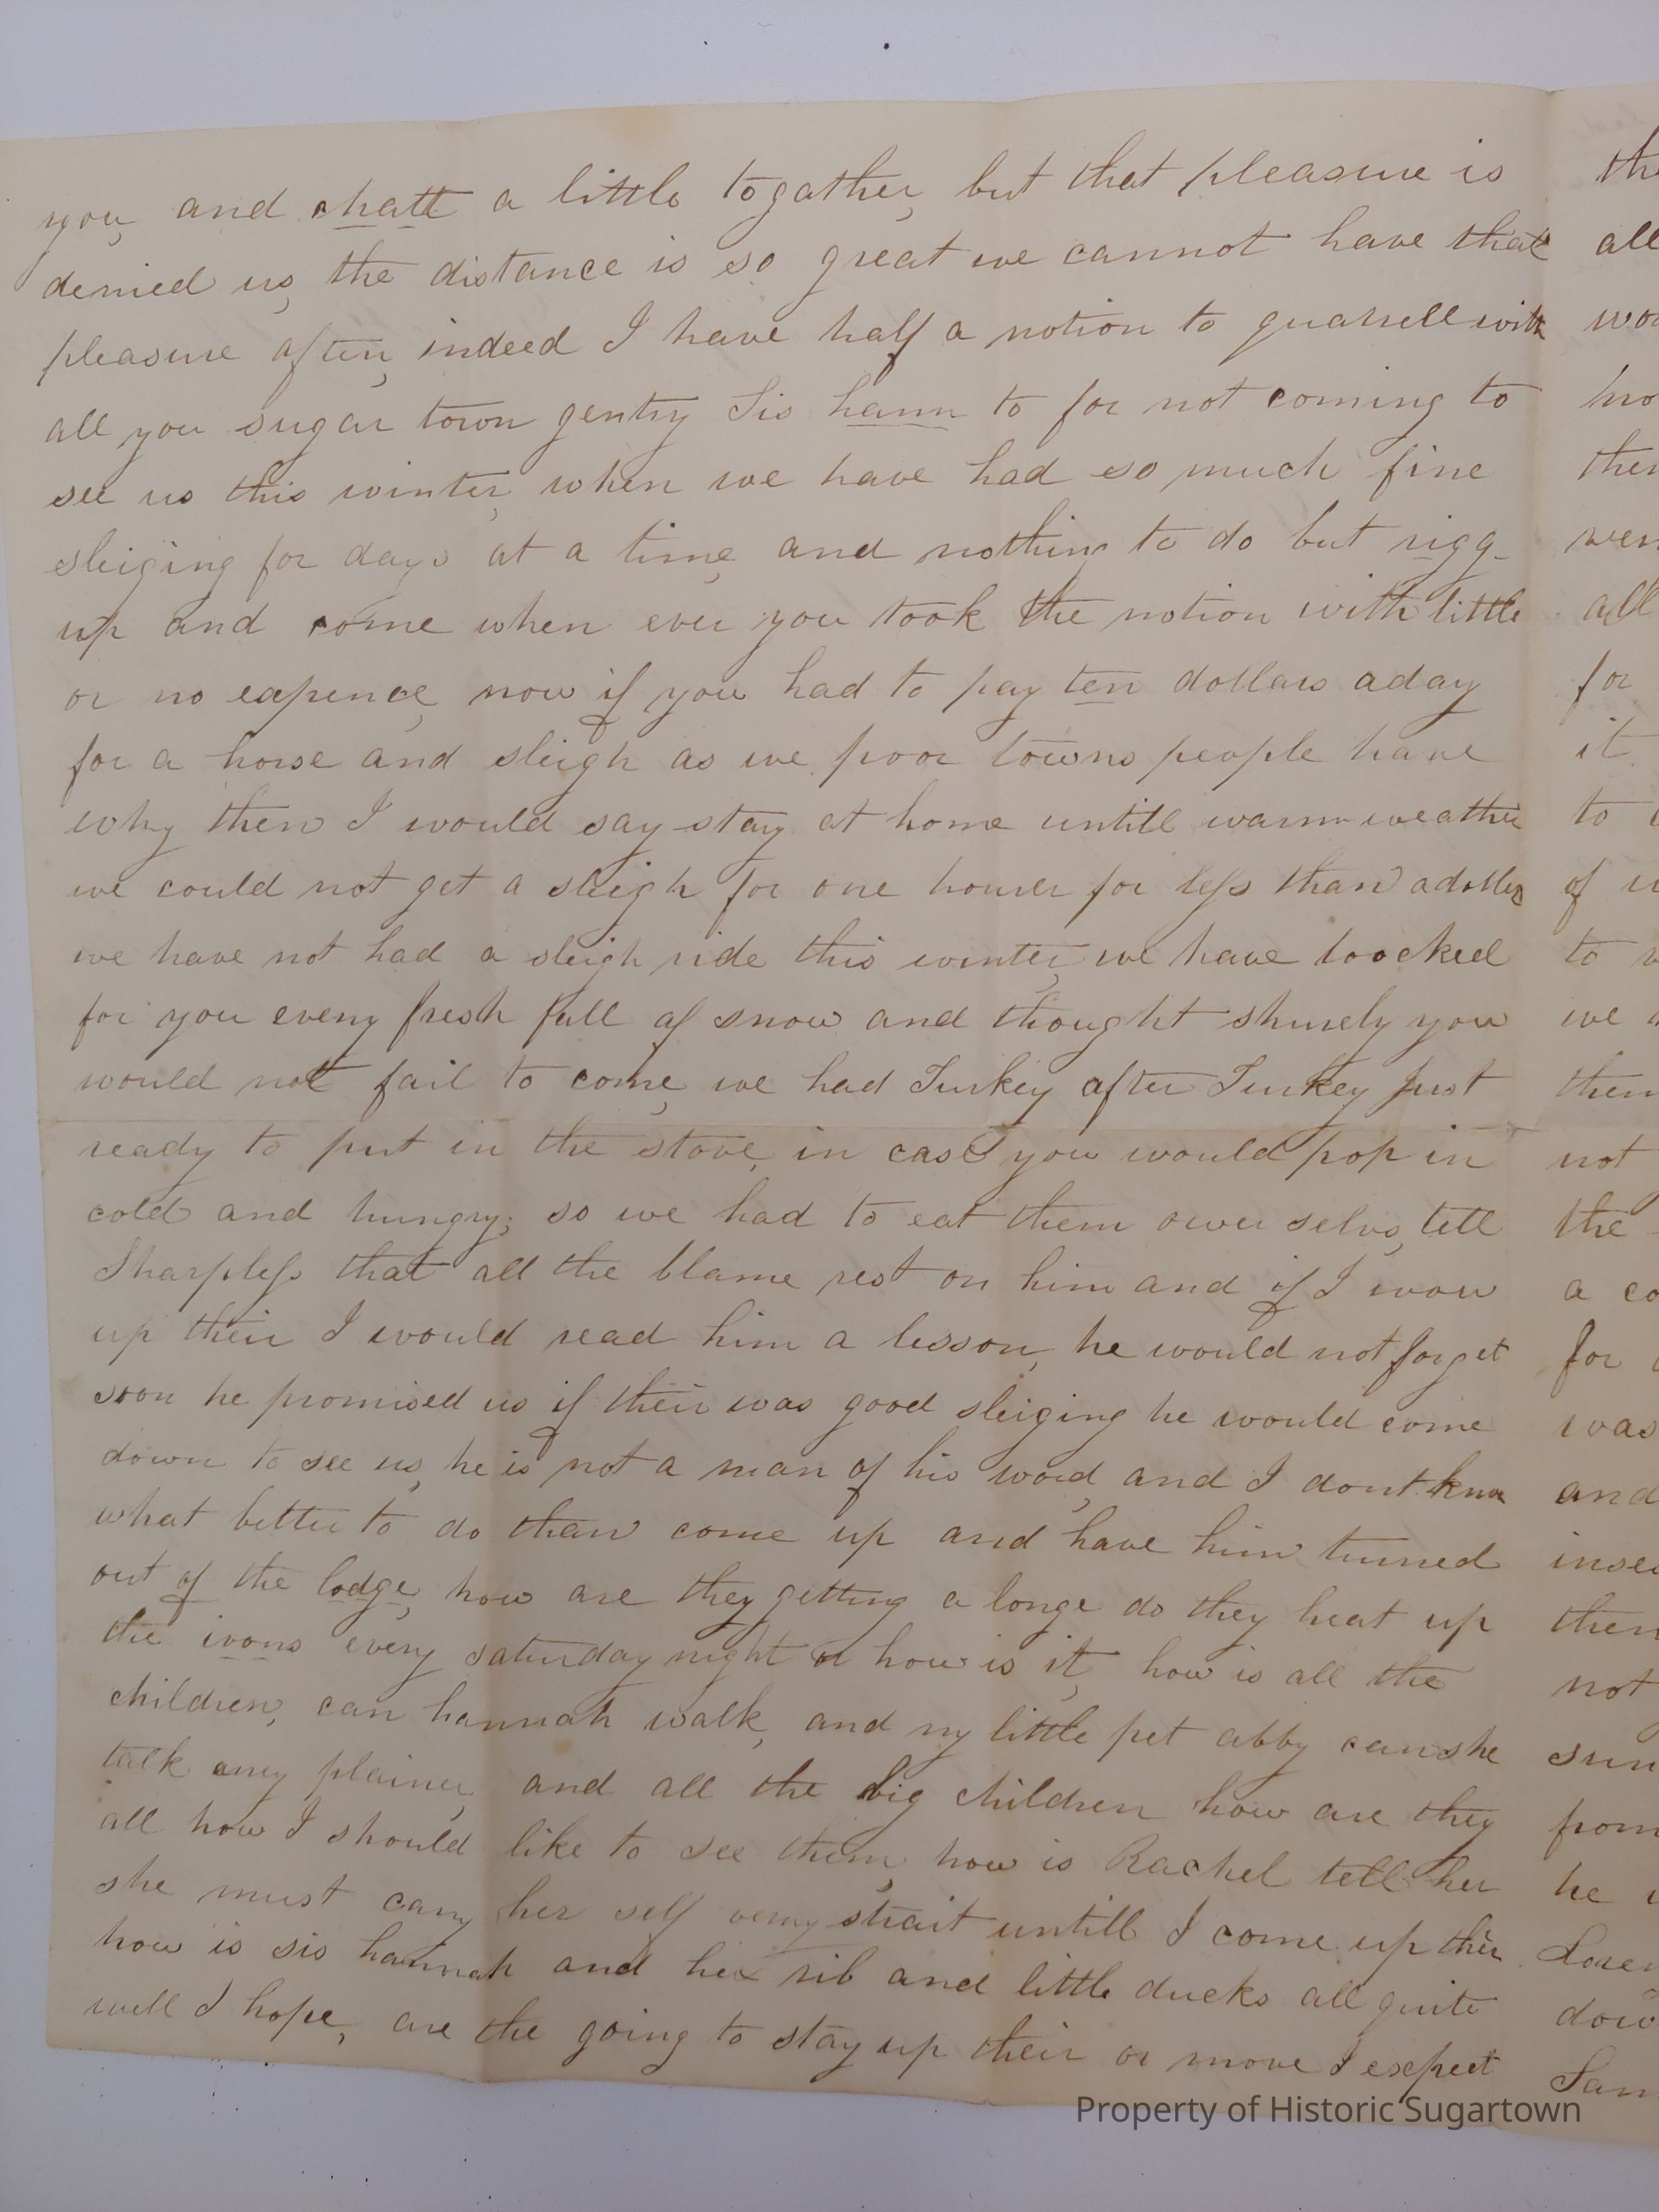 you, and chatt a little togather, but that pleasure is
denied us, the distance is so great we cannot have that
pleasure often, indeed I have half a notion to quarrell with
all you sugar town gentry Sis hann to for not coming to
see us this winter, when we have had so much fine
sleiging for days at a time, and nothing to do but rigg
up and come when ever you took the notion with little
or no expence, now if you had to pay ten dollars aday
for a horse and sleigh as we poor towns people have
why then I would say stay at home untill warm weather
we could not get a sleigh for one houer for less than adoller
we have not had a sleigh ride this winter, we have loocked
for you eveny fresh fall of snow and thought shurely you
would not fail to come, we had Turkey after Turkey just
ready to put in the stove, in case you would pop in
cold and hungry; so we had to eat them ower selvs, tell
Sharpless that all the blame rest on him and if I wow
up their I would read him a lesson, he would not forget
soon he promised us if their was good sleiging he would come
down to see us, he is not a man of his word, and I dont know
what better to do than come up and have him turned
out of the lodge, how are they getting a longe do they heat up
the irons every saturday night or how is it, how is all the
children, can hannah walk, and my little pet abby can she
talk any plainer, and all the big children how are they
all how I should like to see them, how is Rachel tell her
she must cary her self veny strait untill I come up their
how is sis hannah and her rib and little ducks all quite
well I hope, are the going to stay up their or move I expect
the
all
wo
mo
then
wen
all
for
it
to
of
to
we
them
not
the
a co
for
was
and
inse
then
not
sun
from
he
dow
Sam
Property of Historic Sugartown